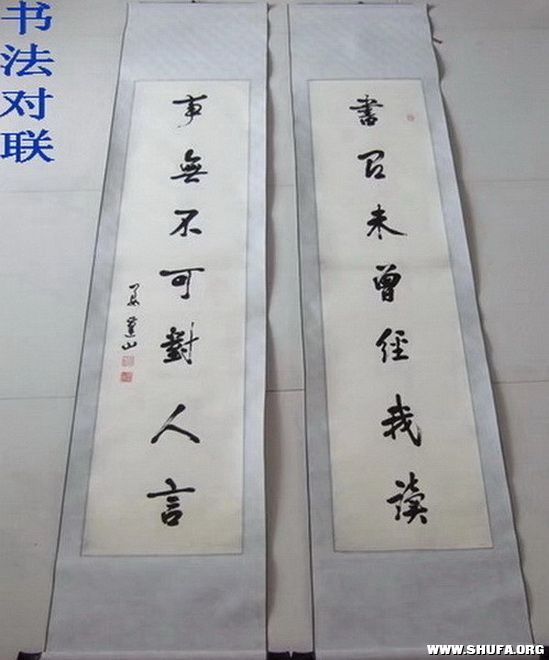 书法对联
書有未曾經我讀
事無不可對人言
山
WWW.SHUFA.ORG